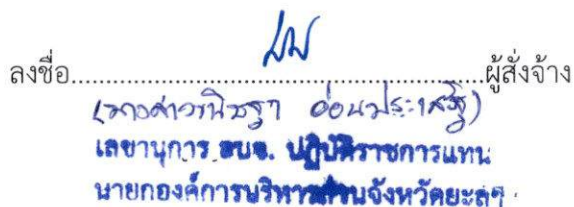 ลงชื่อ........................................................ผู้สั่งจ้าง
(นางสาวนิชฐา อ่อนประเสริฐ)
เลขานุการ อบจ. ปฏิบัติราชการแทน
นายกองค์การบริหารส่วนจังหวัดยะลา